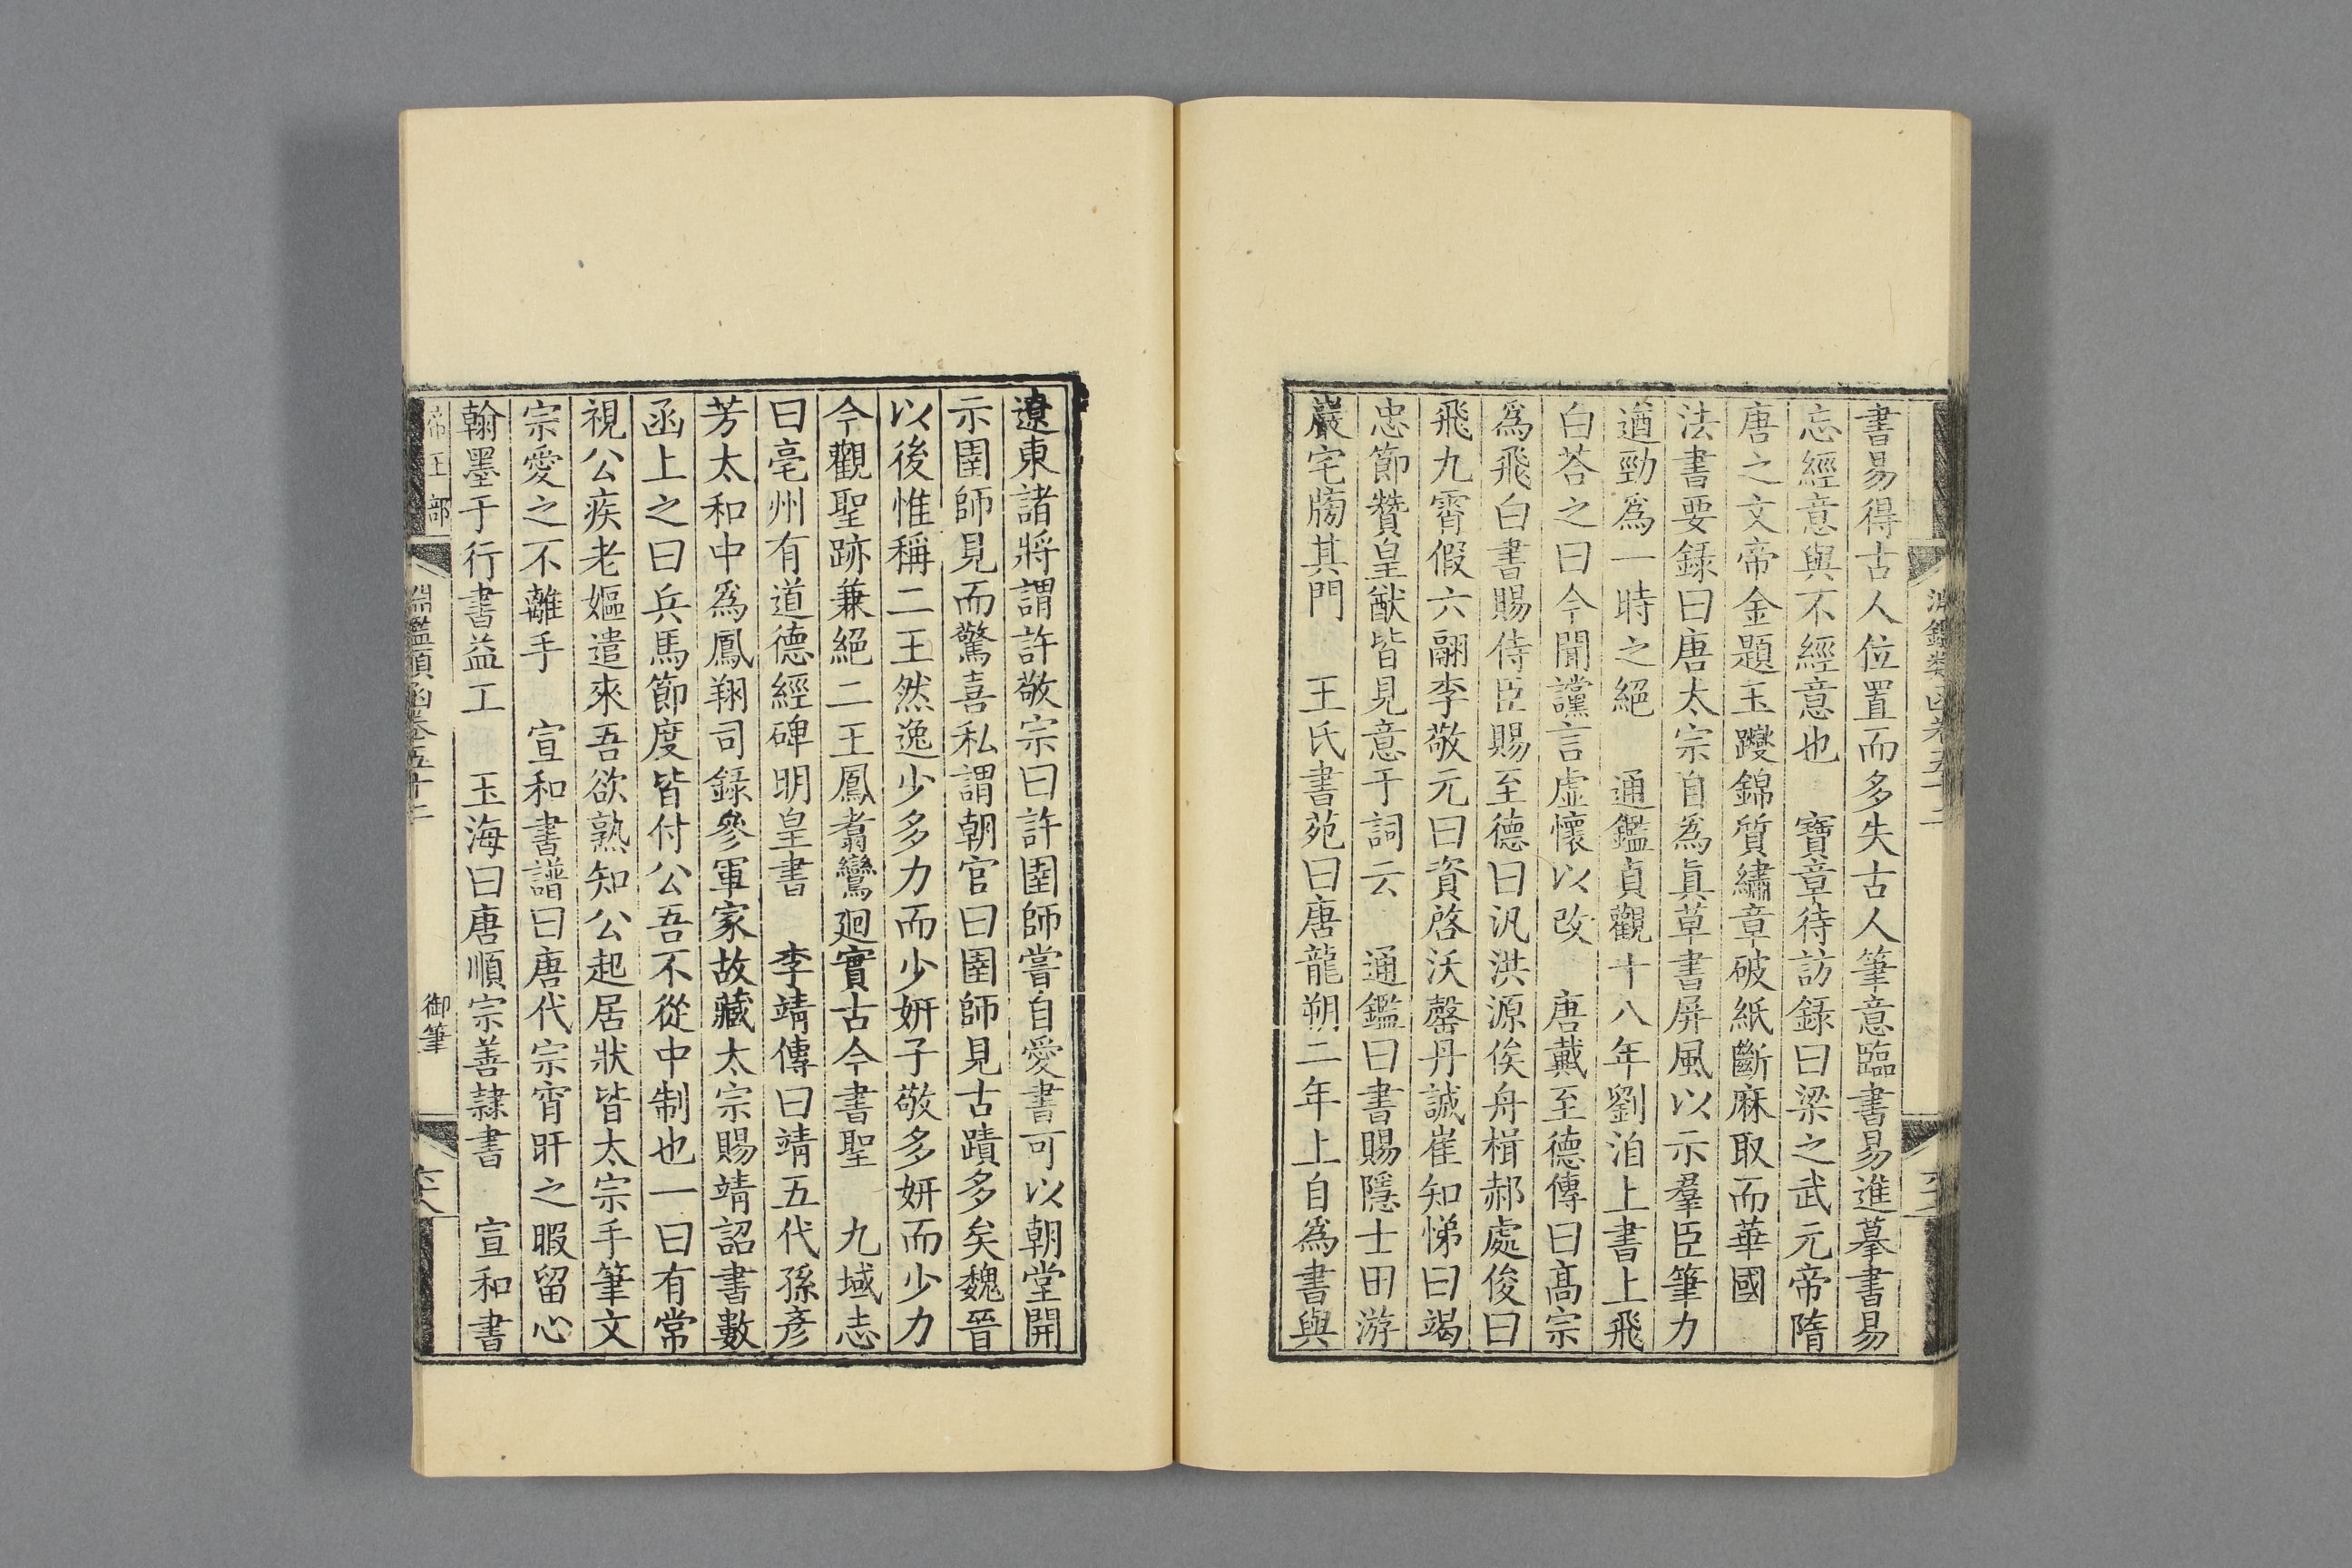 書易得古人位置而多失古人筆意臨書易進摹書易
忘經意與不經意也　寶章待訪錄曰梁之武元帝隋
唐之文帝金題玉躞錦質繡章破紙斷麻取而華國
法書要錄曰唐太宗自爲眞草書屏風以示羣臣筆力
遒勁爲一時之絕　通鑑貞觀十八年劉洎上書上飛
白荅之曰今聞讜言虛懷以改　唐戴至德傳曰高宗
爲飛白書賜侍臣賜至德曰汎洪源俟舟楫郝處俊曰
飛九霄假六翮李敬元曰資啓沃罄丹誠崔知悌曰竭
忠節贊皇猷皆見意于詞云　通鑑曰書賜隱士田游
巖宅牓其門　王氏書苑曰唐龍朔二年上自爲書與
遼東諸將謂許敬宗曰許圉師嘗自愛書可以朝堂開
示圉師見而驚喜私謂朝官曰圉師見古蹟多矣魏晉
以後惟稱二王然逸少多力而少妍子敬多妍而少力
今觀聖跡兼絕二王鳳翥鸞迴實古今書聖　九域志
曰亳州有道德經碑明皇書　李靖傳曰靖五代孫彥
芳太和中爲鳳翔司錄參軍家故藏太宗賜靖詔書數
函上之曰兵馬節度皆付公吾不從中制也一曰有常
視公疾老嫗遣來吾欲熟知公起居狀皆太宗手筆文
宗愛之不離手　宣和書譜曰唐代宗宵旰之暇留心
翰墨于行書益工　玉海曰唐順宗善隷書　宣和書
帝王部　淵鑑類函卷五十二　御筆